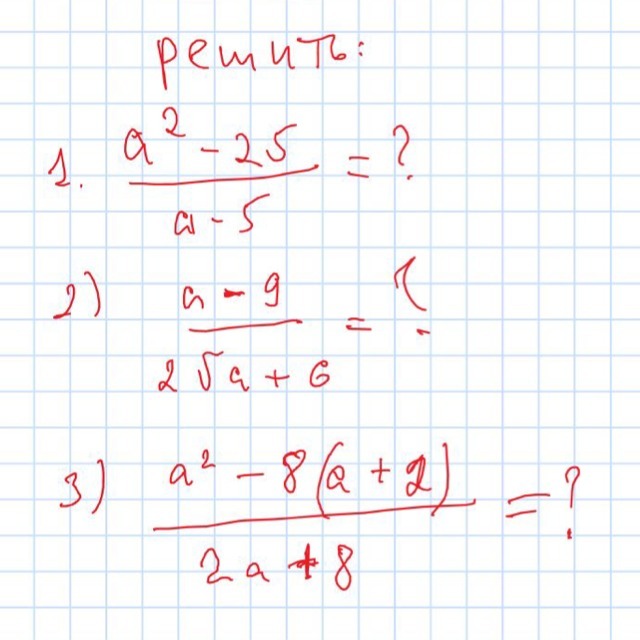 решить:
1. (a² - 25)/(a - 5) = ?
2) (a - 9)/(2√a + 6) = ?
3) (a² - 8(a + 2))/(2a + 8) = ?